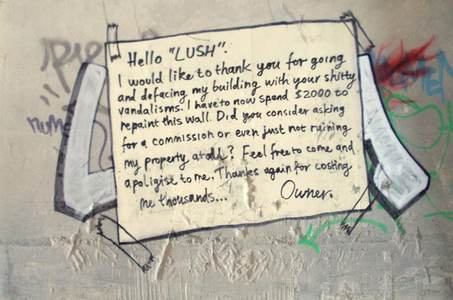 Hello "LUSH".
I would like to thank you for going
and defacing my building with your shitty
vandalisms. I have to now spend $2000 to
repaint this wall. Did you consider asking
for a commission or even just not ruining
my property at all? Feel free to come and
apoligise to me. Thanks again for costing
me thousands...
Owner.